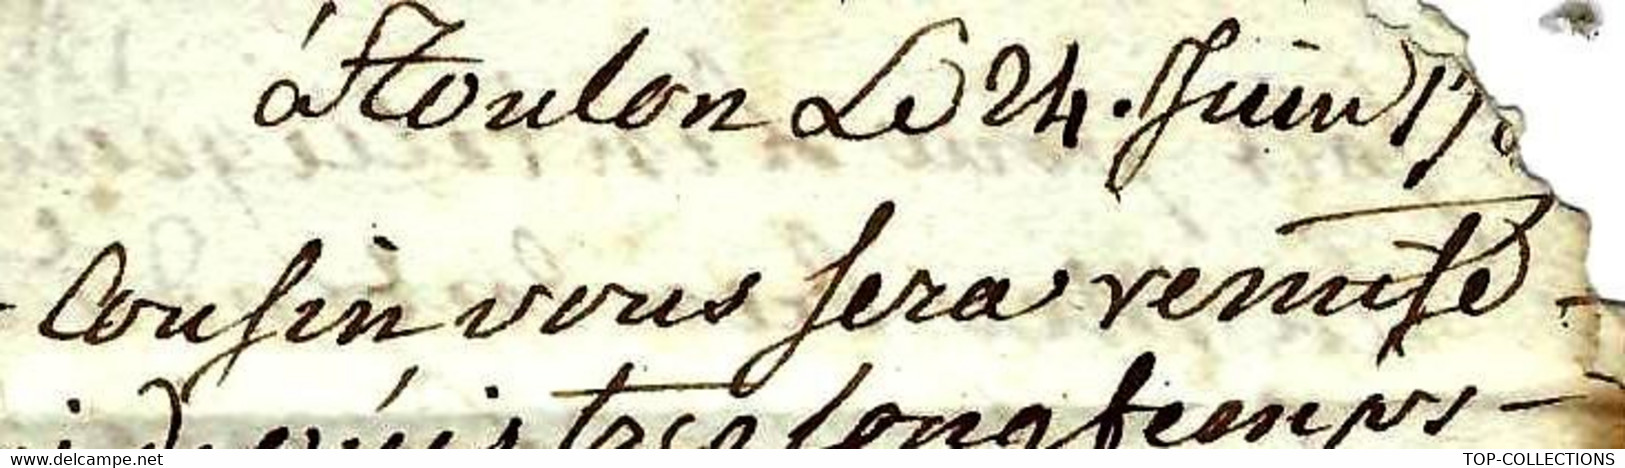 à Toulon Le 24. Juin 17
Cousin vous sera remise -
depuis tres longtemps -
www.delcampe.net
TOP-COLLECTIONS